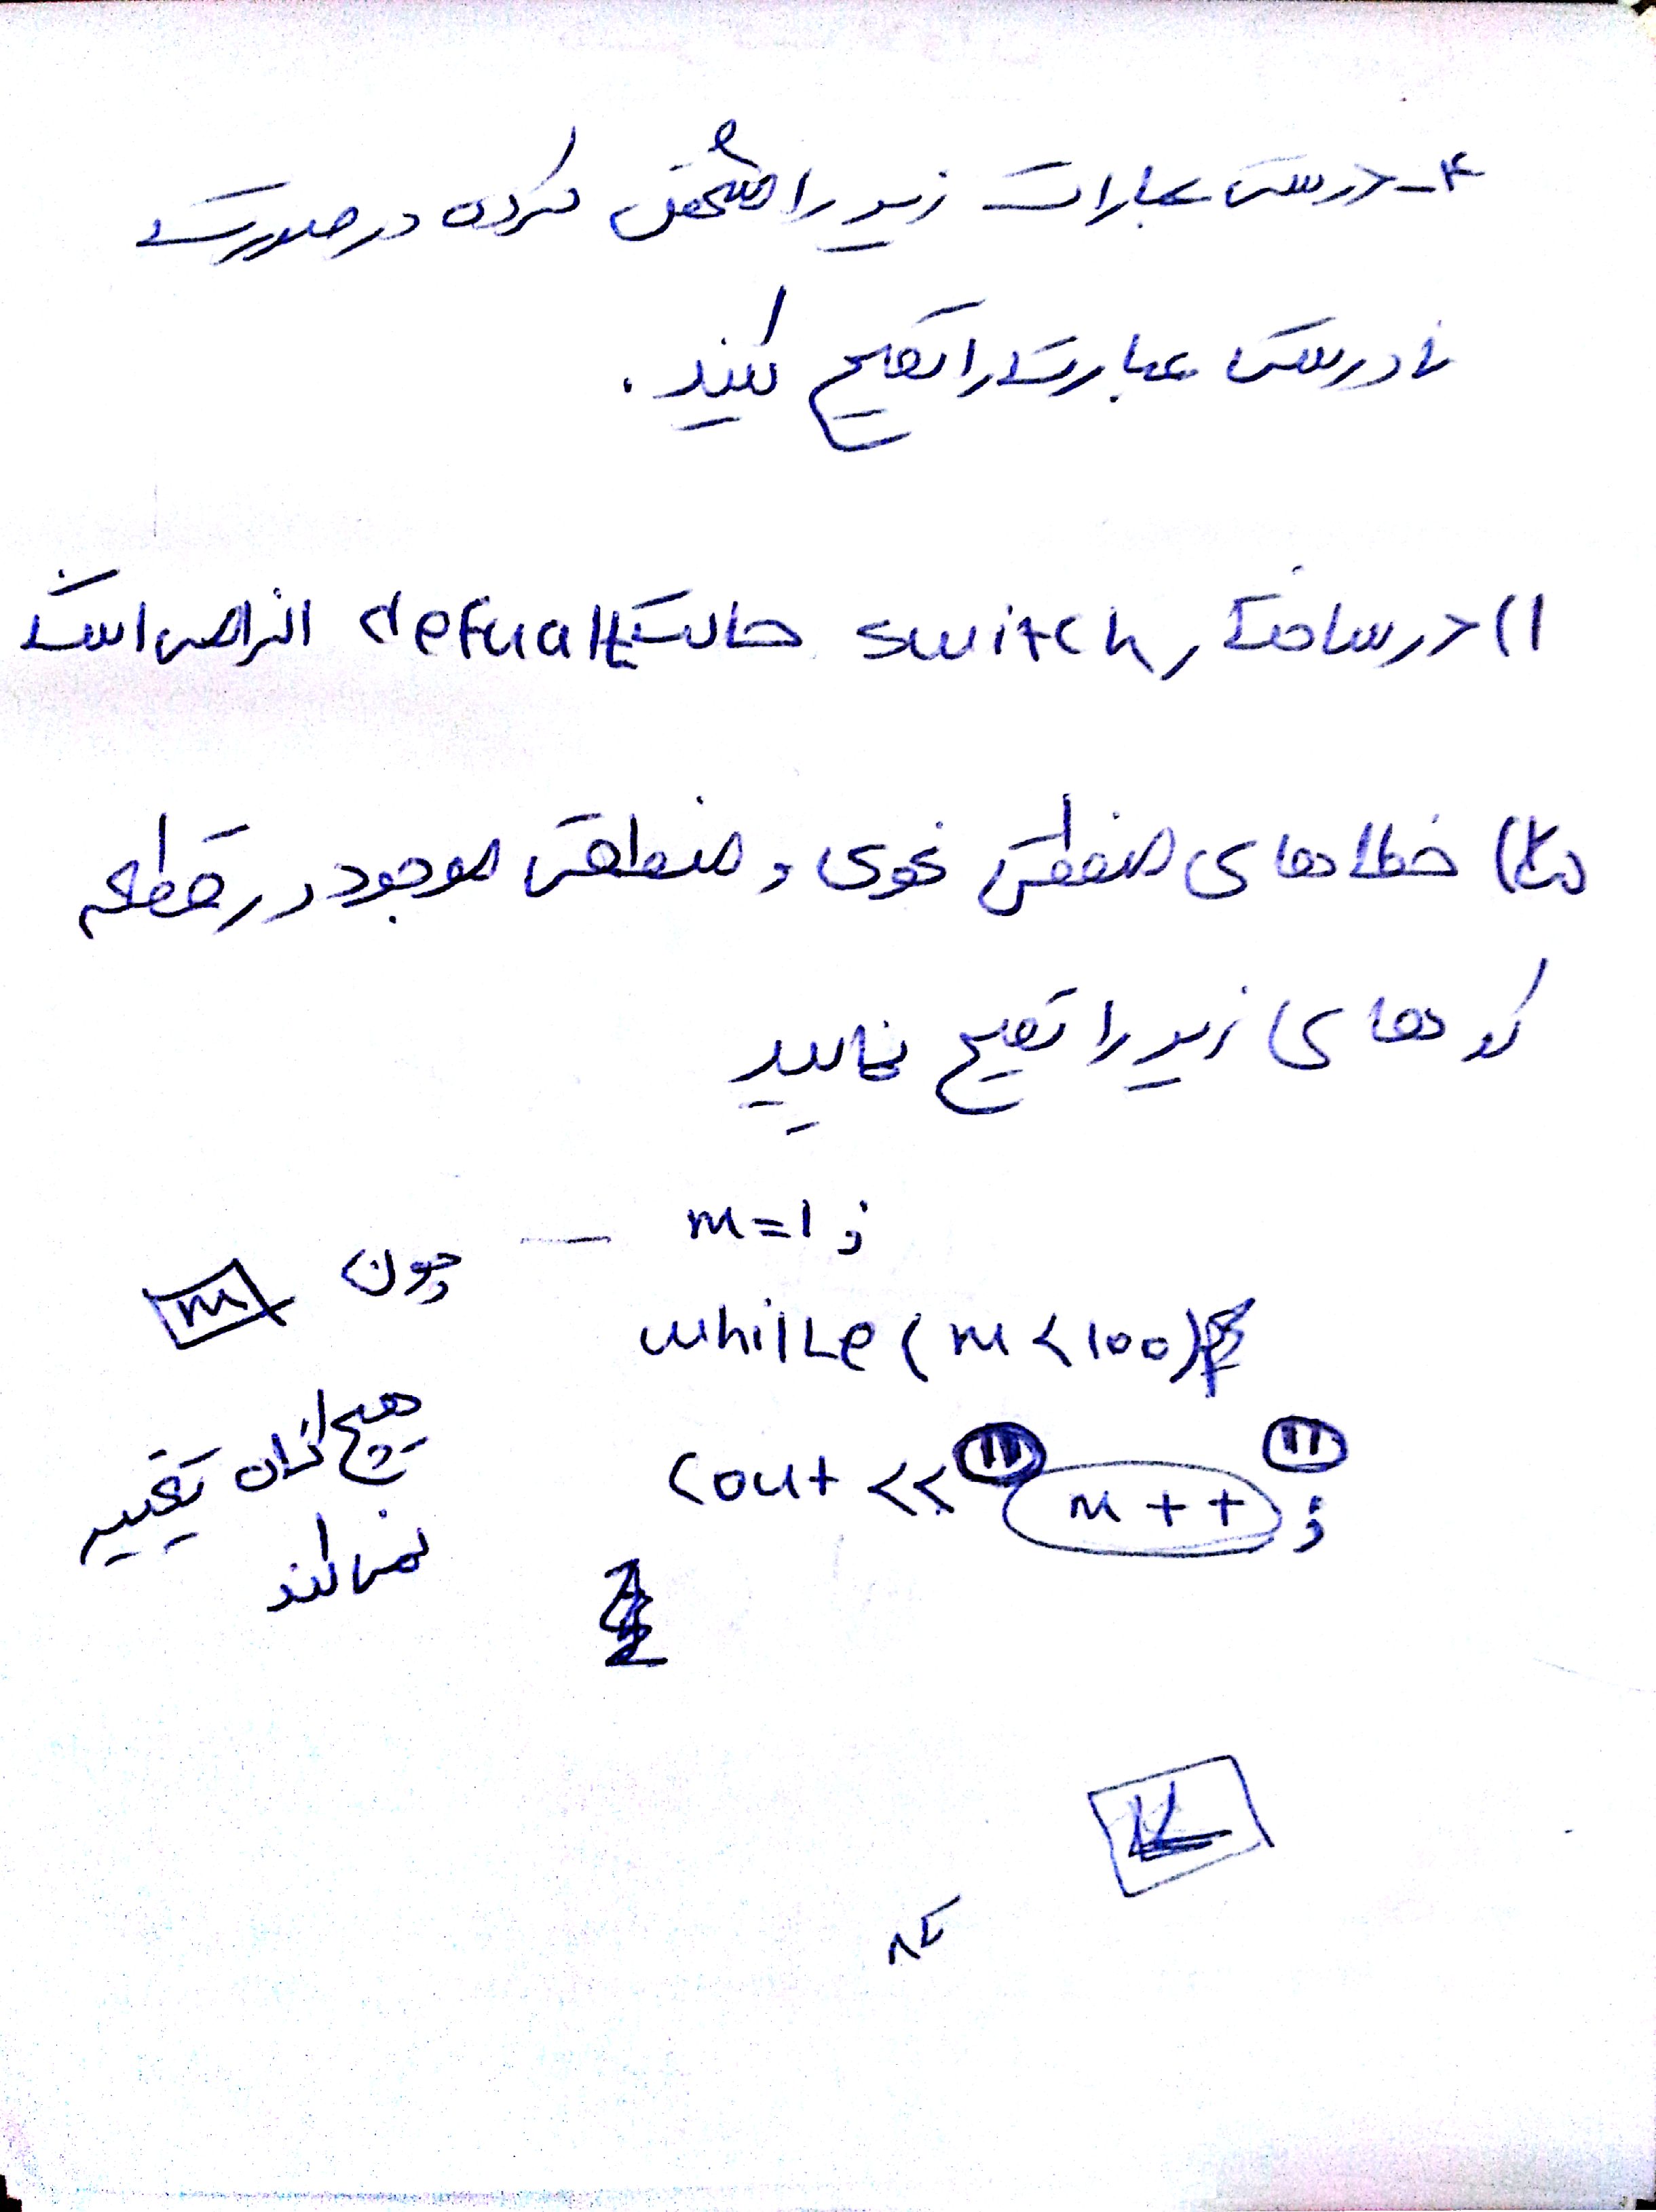 ۴- درستی عبارات زیر را مشخص کرده در صورت
نادرستی عبارت را تصحیح کنید.
۱) در ساختار switch حالت defualt الزامی است
خطاهای منطقی نحوی و منطقی موجود در قطعه
کدهای زیر را تصحیح نمایید
m=1;
while (m<100)
cout << "m++";
چون m
هیچ گاه تغییر
نمی کند